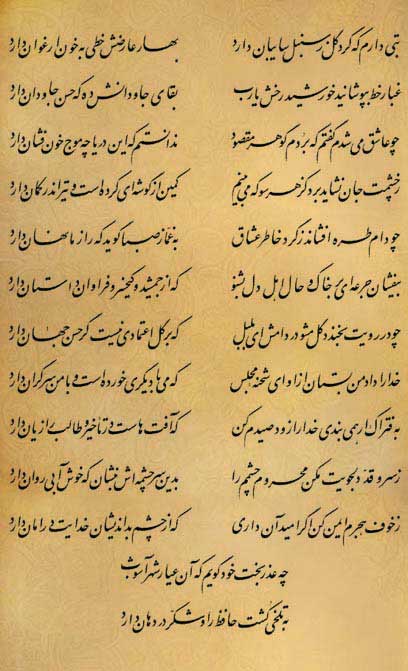 بتی دارم که گرد گل ز سنبل سایبان دارد بهار عارضش خطی به خون ارغوان دارد
غبار خط بپوشانید خورشید رخش یارب بقای جاودانش ده که حسن جاودان دارد
چو عاشق می شدم گفتم که بردم گوهر مقصود ندانستم که این دریا چه موج خون فشان دارد
ز چشمت جان نشاید برد کز هر سو که می بینم کمین از گوشه ای کرده است و تیر اندر کمان دارد
چو دام طره افشاند ز گرد خاطر عشاق به غماز صبا گوید که راز ما نهان دارد
بیفشان جرعه ای بر خاک و حال اهل دل بشنو که از جمشید و کیخسرو فراوان داستان دارد
چو در رویت بخندد گل مشو در دامش ای بلبل که بر گل اعتمادی نیست گر حسن جهان دارد
خدا را داد من بستان از او ای شحنه مجلس که می با دیگری خورده است و با من سر گران دارد
به فتراک ار همی بندی خدا را زود صیدم کن که آفت هاست در تاخیر و طالب را زیان دارد
ز سرو قد دلجویت مکن محروم چشمم را بدین سرچشمه اش بنشان که خوش آبی روان دارد
ز خوف هجرم ایمن کن اگر امید آن داری که از چشم بداندیشان خدایت در امان دارد
چه عذر بخت خود گویم که آن عیار شهرآشوب
به تلخی کشت حافظ را و شکر در دهان دارد